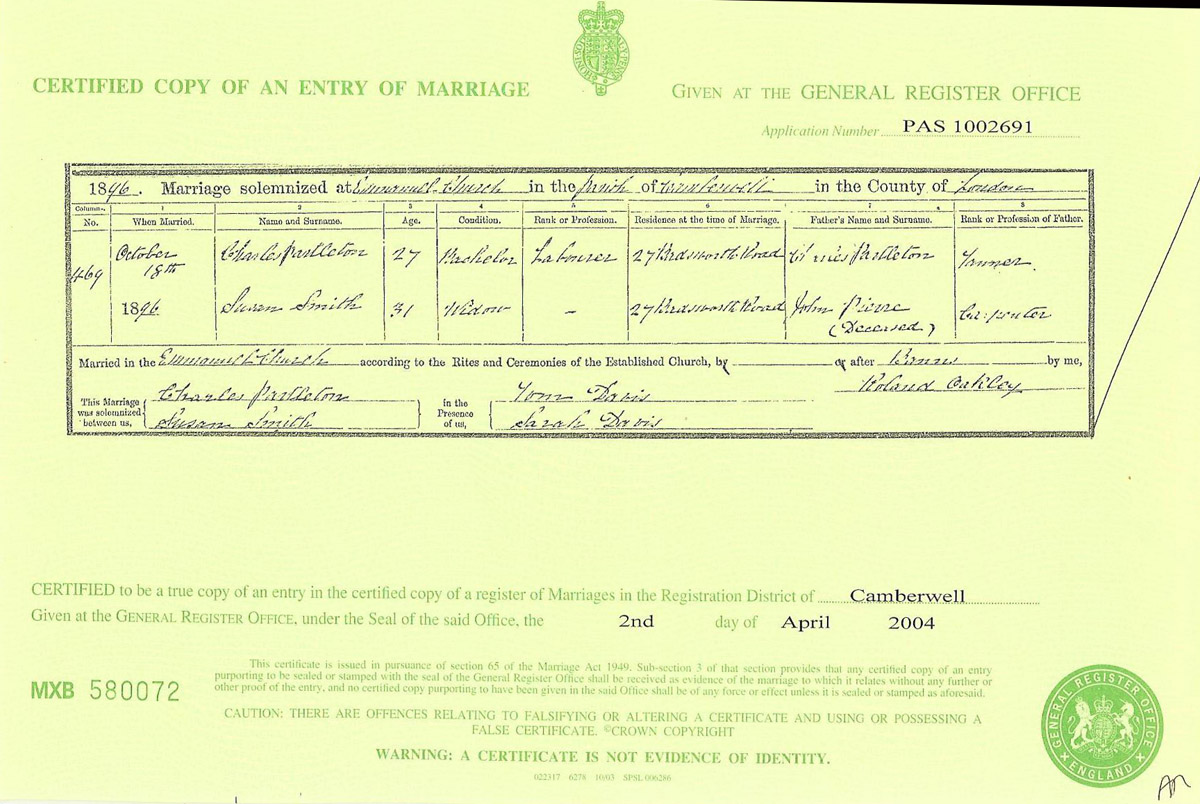 CERTIFIED COPY OF AN ENTRY OF MARRIAGE
GIVEN AT THE GENERAL REGISTER OFFICE
Application Number PAS 1002691
1896. Marriage solemnized at Emmanuel Church in the Parish of Camberwell in the County of London
Columns:— 1 2 3 4 5 6 7 8
No. When Married. Name and Surname. Age. Condition. Rank or Profession. Residence at the time of Marriage. Father's Name and Surname. Rank or Profession of Father.
469 October 18th Charles Partleton 27 Bachelor Labourer 27 Road Charles Partleton Tanner.
1896 Susan Smith 31 Widow - 27 Road John (Deceased) Carpenter
Married in the Emmanuel Church according to the Rites and Ceremonies of the Established Church, by or after Banns by me,
Roland Oakley
This Marriage was solemnized between us, Charles Partleton Susan Smith in the Presence of us, Tom Davis Sarah Davis
CERTIFIED to be a true copy of an entry in the certified copy of a register of Marriages in the Registration District of Camberwell
Given at the GENERAL REGISTER OFFICE, under the Seal of the said Office, the 2nd day of April 2004
MXB 580072
This certificate is issued in pursuance of section 65 of the Marriage Act 1949. Sub-section 3 of that section provides that any certified copy of an entry
purporting to be sealed or stamped with the seal of the General Register Office shall be received as evidence of the marriage to which it relates without any further or
other proof of the entry, and no certified copy purporting to have been given in the said Office shall be of any force or effect unless it is sealed or stamped as aforesaid.
CAUTION: THERE ARE OFFENCES RELATING TO FALSIFYING OR ALTERING A CERTIFICATE AND USING OR POSSESSING A
FALSE CERTIFICATE. ©CROWN COPYRIGHT
WARNING: A CERTIFICATE IS NOT EVIDENCE OF IDENTITY.
022317 6278 10/03 SPSL 006286
GENERAL REGISTER OFFICE
ENGLAND